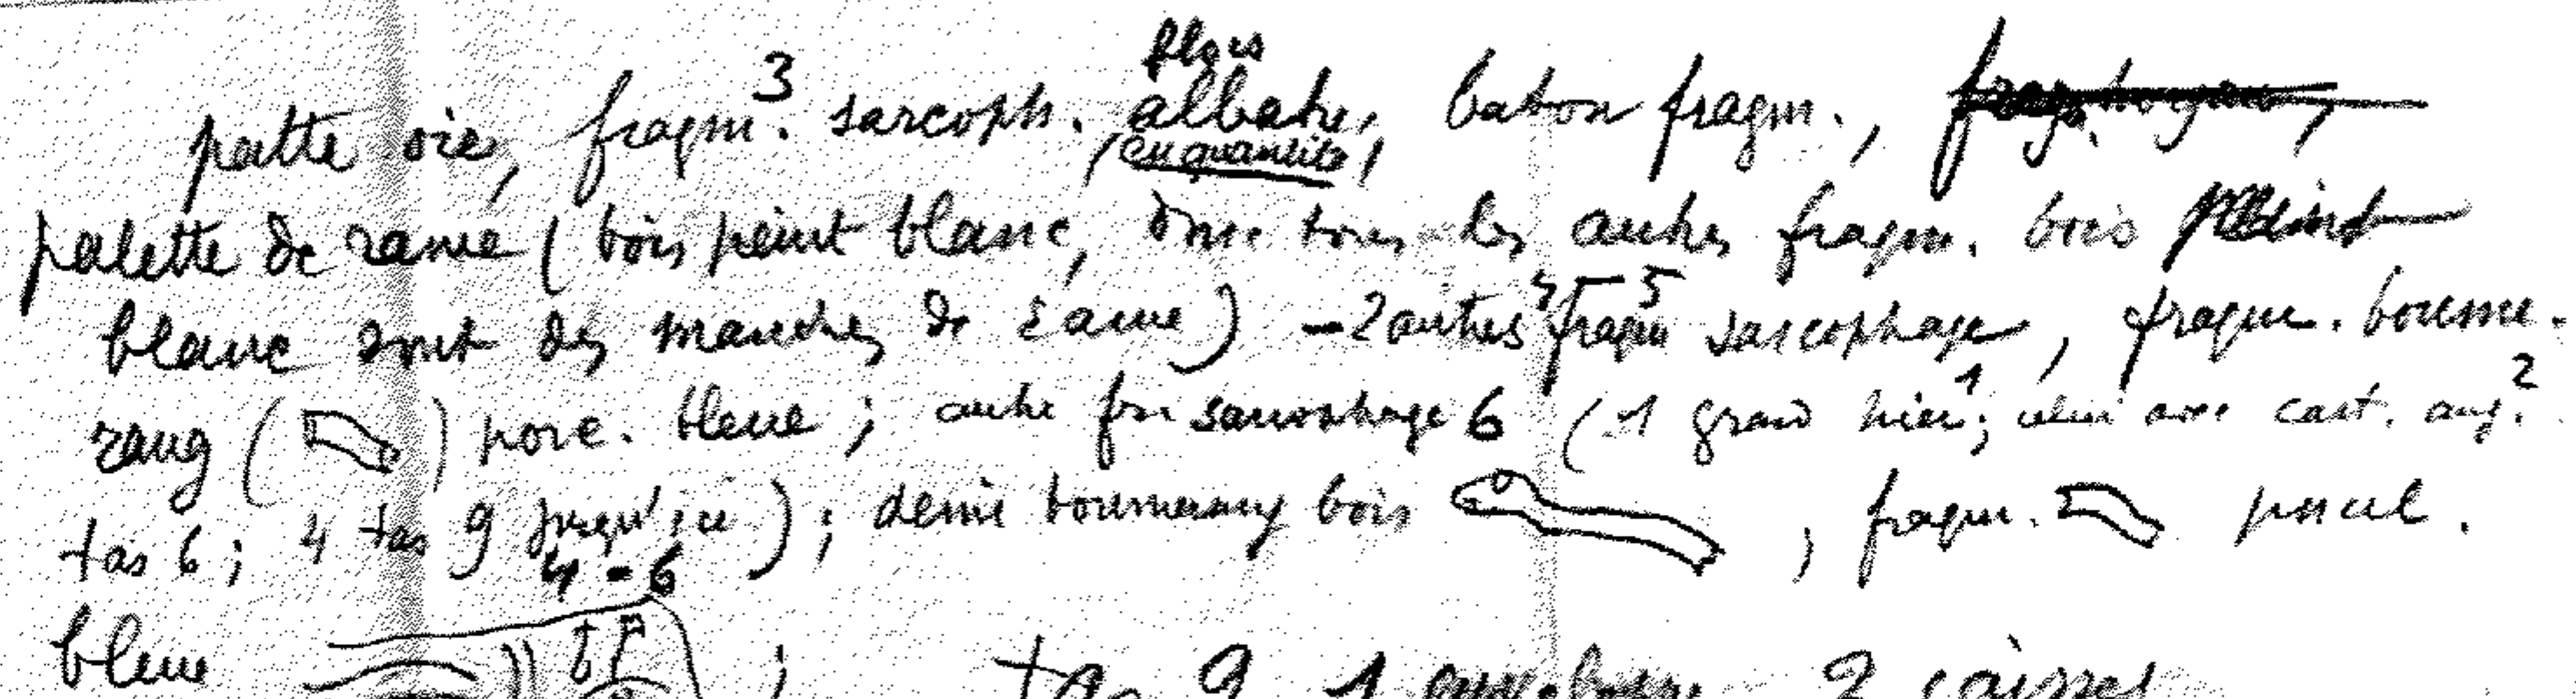 patte oie, fragm. 3 sarcoph. albatre, baton fragm.,
(en quantité)
palette de rame (bois peint blanc, donc tous les autres fragm. bois peint
blanc sont des manches de rame) - 2 autres fragm 4-5 sarcophage, fragm. boume-
rang ( ) porc. bleue ; autre fr sarcophage 6 (1 grand hier 1; celui avec cart. auj. 2
tas 6 ; 4 tas 9 jusqu'ici) ; demi boumerang bois , fragm. porcel.
4-6
bleue ; tas 9 1 2 caisses